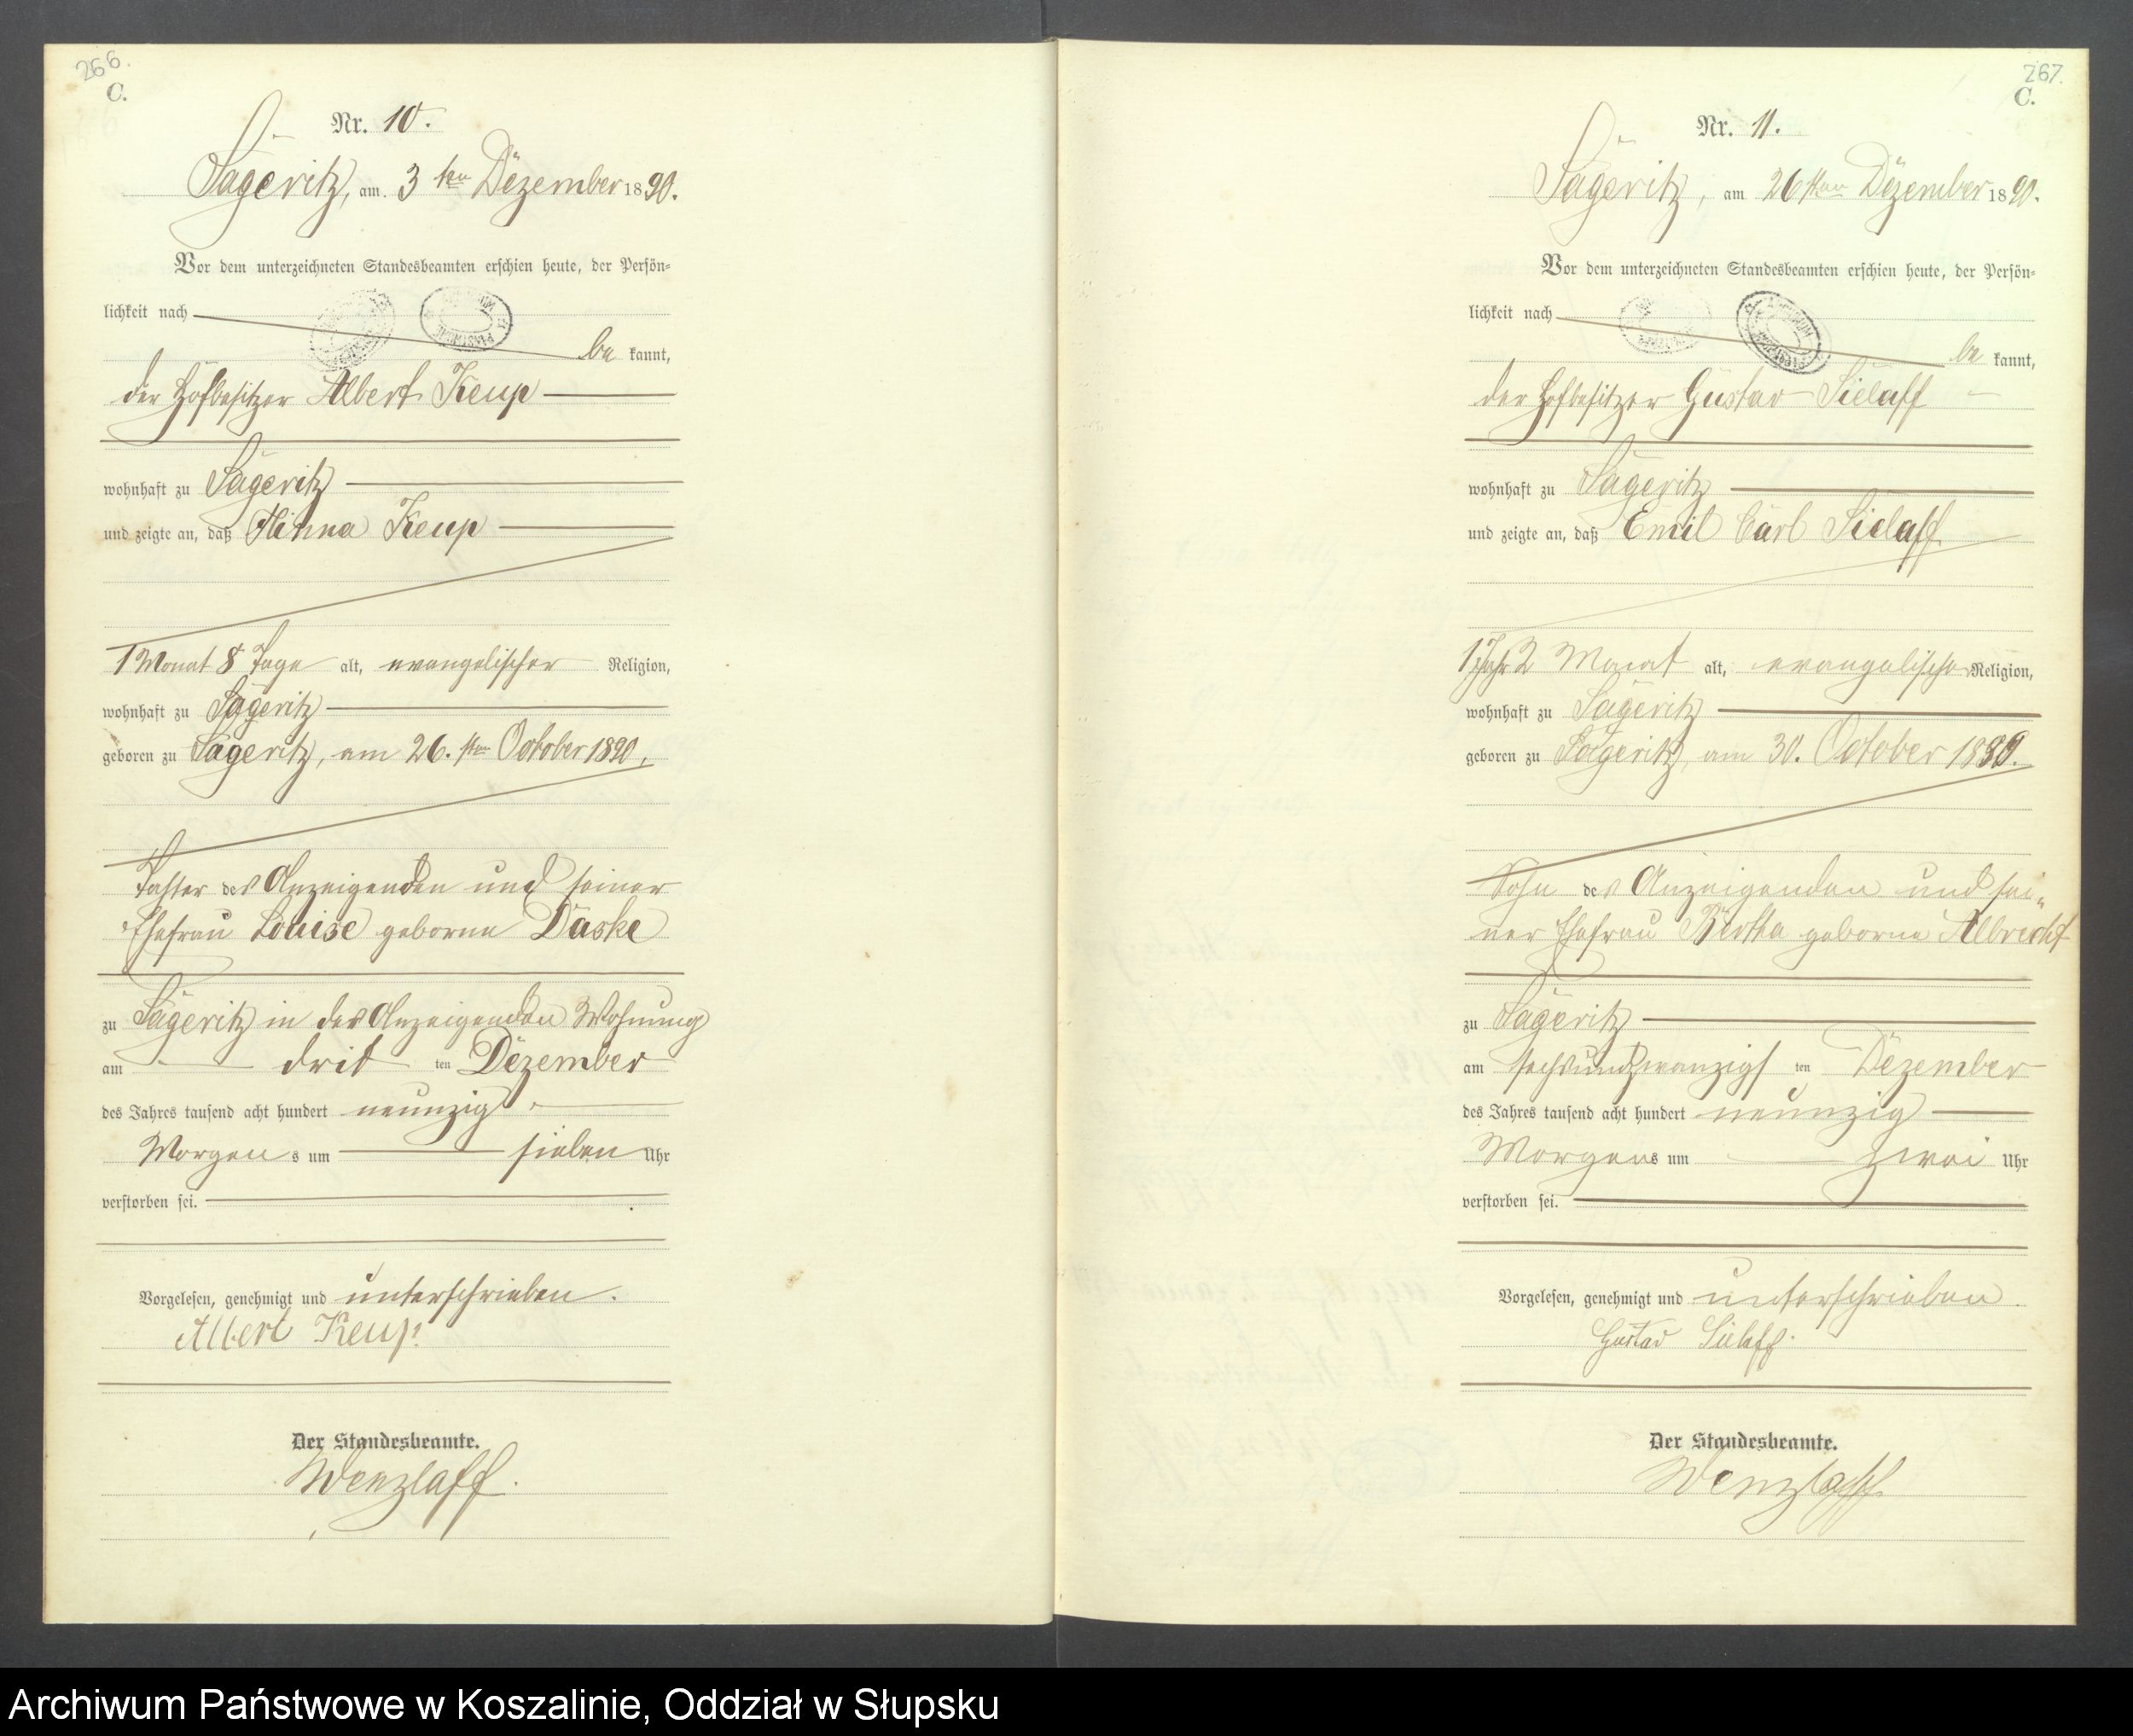 266.
C.
Nr. 10.
Sageritz, am 3ten Dezember 1890.
Vor dem unterzeichneten Standesbeamten erschien heute, der Persön=
lichkeit nach
be kannt,
der Hofbesitzer Albert Keup
wohnhaft zu Sageritz
und zeigte an, daß Minna Keup
1 Monat 8 Tage alt, evangelischer Religion,
wohnhaft zu Sageritz
geboren zu Sageritz, am 26.sten October 1890,
Tochter des Anzeigenden und seiner
Ehefrau Louise geborne Daske
zu Sageritz in des Anzeigenden Wohnung
am drit ten Dezember
des Jahres tausend acht hundert neunzig
Morgens um sieben Uhr
verstorben sei.
Vorgelesen, genehmigt und unterschrieben.
Albert Keup.
Der Standesbeamte.
Wenzlaff.
267.
C.
Nr. 11.
Sageritz, am 26sten Dezember 1890.
Vor dem unterzeichneten Standesbeamten erschien heute, der Persön=
lichkeit nach
be kannt,
der Hofbesitzer Gustav Sielaff
wohnhaft zu Sageritz
und zeigte an, daß Emil Carl Sielaff
1 Jahr 2 Monat alt, evangelischer Religion,
wohnhaft zu Sageritz
geboren zu Sageritz, am 30. October 1889.
Sohn des Anzeigenden und sei=
ner Ehefrau Bertha geborne Albrecht
zu Sageritz
am sechsundzwanzigs ten Dezember
des Jahres tausend acht hundert neunzig
Morgens um zwei Uhr
verstorben sei.
Vorgelesen, genehmigt und unterschrieben.
Gustav Sielaff.
Der Standesbeamte.
Wenzlaff
Archiwum Państwowe w Koszalinie, Oddział w Słupsku